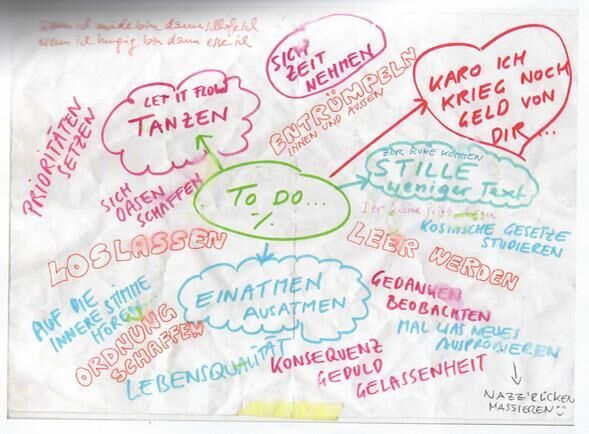 wenn ich müde bin dann schlafe ich
wenn ich hungrig bin dann esse ich
SICH
ZEIT
NEHMEN
KARO ICH
KRIEG NOCH
GELD VON
DIR...
LET IT FLOW
TANZEN
ENTRÜMPELN
INNEN UND AUSSEN
PRIORITÄTEN
SETZEN
SICH
OASEN
SCHAFFEN
TO DO...
%
ZUR RUHE KOMMEN
STILLE
weniger Text
KOSMISCHE GESETZE
STUDIEREN
LOSLASSEN
LEER WERDEN
EINATMEN
AUSATMEN
AUF DIE
INNERE STIMME
HÖREN
GEDANKEN
BEOBACHTEN
MAL WAS NEUES
AUSPROBIEREN
ORDNUNG
SCHAFFEN
LEBENSQUALITÄT
KONSEQUENZ
GEDULD
GELASSENHEIT
NAZZ'RÜCKEN
MASSIEREN